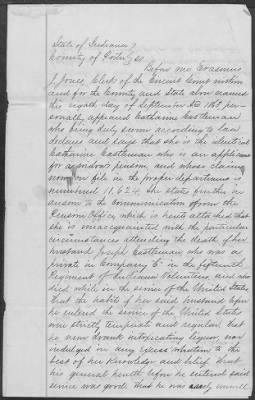 State of Indiana }
County of Porter } SS.
Before me Erasmus
J. Jones, Clerk of the Circuit Court within
and for the County and State above named
this eighth day of September AD 1863 per-
sonally, appeared Catharine Castleman
who being duly sworn according to law
declares and says that she is the identical
Catharine Castleman who is an applicant
for a widows pension and whose claim
now on file in the proper department is
numbered 11.624 She states further in
answer to the communication from the
Pension Office which is hereto attached that
she is unacquainted with the particular
circumstances attending the death of her
husband Joseph Castleman who was a
private in Company in the fifteenth
Regiment of Indiana Volunteers and who
died while in the service of the United States
That the habits of her said husband before
he entered the service of the United States
were strictly temperate and regular, that
he never drank intoxicating liquor, nor
indulged in any excess whatever to the
best of her knowledge and belief. That
his general health before he entered said
service was good. That he was rarely unwell